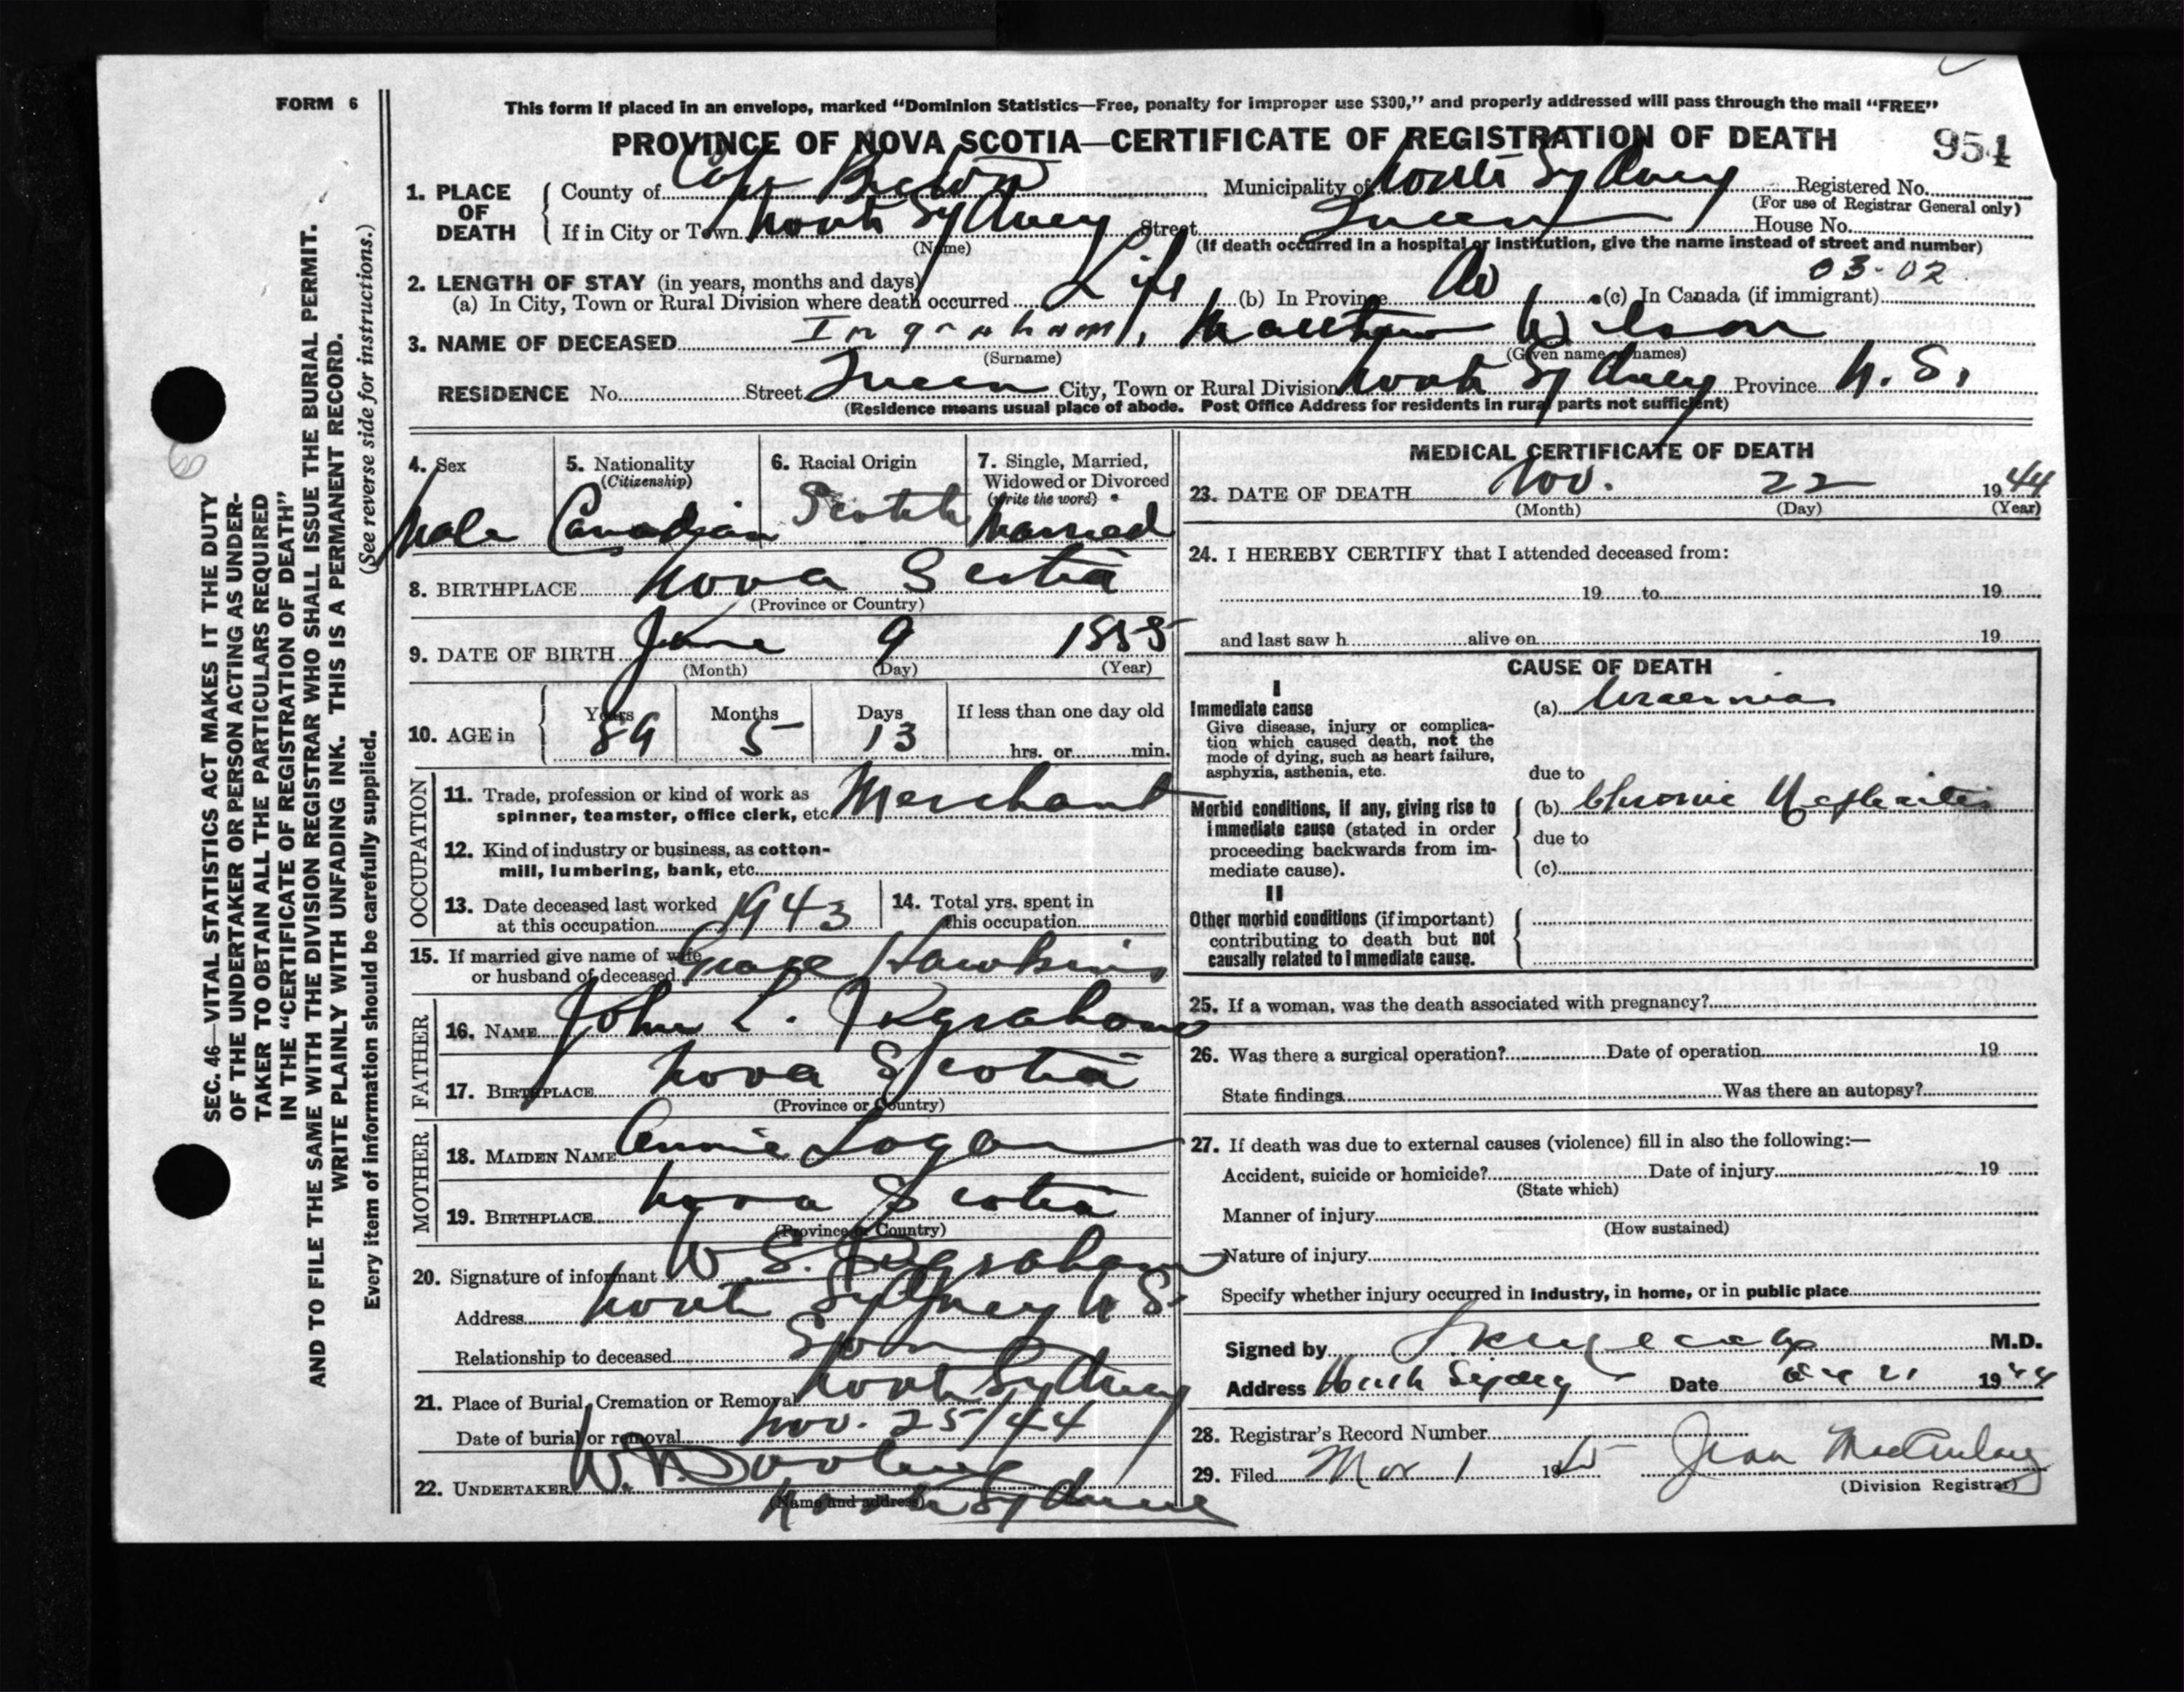 FORM 6
This form if placed in an envelope, marked “Dominion Statistics—Free, penalty for improper use $300,” and properly addressed will pass through the mail “FREE”
PROVINCE OF NOVA SCOTIA—CERTIFICATE OF REGISTRATION OF DEATH
954
1. PLACE OF DEATH
County of Cape Breton Municipality of North Sydney Registered No.
(For use of Registrar General only)
If in City or Town North Sydney Street Queen House No.
(Name) (If death occurred in a hospital or institution, give the name instead of street and number)
03-02
2. LENGTH OF STAY (in years, months and days)
(a) In City, Town or Rural Division where death occurred Life (b) In Province (c) In Canada (if immigrant)
3. NAME OF DECEASED Ingraham, Matthew Wilson
(Surname) (Given name or names)
RESIDENCE No. Street Queen City, Town or Rural Division North Sydney Province N. S.
(Residence means usual place of abode. Post Office Address for residents in rural parts not sufficient)
SEC. 46—VITAL STATISTICS ACT MAKES IT THE DUTY
OF THE UNDERTAKER OR PERSON ACTING AS UNDER-
TAKER TO OBTAIN ALL THE PARTICULARS REQUIRED
IN THE “CERTIFICATE OF REGISTRATION OF DEATH”
AND TO FILE THE SAME WITH THE DIVISION REGISTRAR WHO SHALL ISSUE THE BURIAL PERMIT.
WRITE PLAINLY WITH UNFADING INK. THIS IS A PERMANENT RECORD.
Every item of information should be carefully supplied. (See reverse side for instructions.)
4. Sex
Male
5. Nationality
(Citizenship)
Canadian
6. Racial Origin
Scotch
7. Single, Married,
Widowed or Divorced
(write the word)
Married
8. BIRTHPLACE Nova Scotia
(Province or Country)
9. DATE OF BIRTH June 9 1855
(Month) (Day) (Year)
10. AGE in
Years Months Days If less than one day old
89 5 13 hrs. or min.
OCCUPATION
11. Trade, profession or kind of work as
spinner, teamster, office clerk, etc. Merchant
12. Kind of industry or business, as cotton-
mill, lumbering, bank, etc.
13. Date deceased last worked
at this occupation 1943
14. Total yrs. spent in
this occupation
15. If married give name of wife
or husband of deceased Grace Hawkins
FATHER
16. NAME John L. Ingraham
17. BIRTHPLACE Nova Scotia
(Province or Country)
MOTHER
18. MAIDEN NAME Annie Logan
19. BIRTHPLACE Nova Scotia
(Province or Country)
20. Signature of informant W S. Ingraham
Address North Sydney N S.
Relationship to deceased Son
21. Place of Burial, Cremation or Removal North Sydney
Date of burial or removal Nov. 25/44
22. UNDERTAKER W.
(Name and address)
North Sydney
MEDICAL CERTIFICATE OF DEATH
23. DATE OF DEATH Nov. 22 1944
(Month) (Day) (Year)
24. I HEREBY CERTIFY that I attended deceased from:
19 to 19
and last saw h alive on 19
CAUSE OF DEATH
I
Immediate cause
Give disease, injury or complica-
tion which caused death, not the
mode of dying, such as heart failure,
asphyxia, asthenia, etc.
(a) Uraemia
due to
Morbid conditions, if any, giving rise to
immediate cause (stated in order
proceeding backwards from im-
mediate cause).
(b) Chronic Nephritis
due to
(c)
II
Other morbid conditions (if important)
contributing to death but not
causally related to immediate cause.
25. If a woman, was the death associated with pregnancy?
26. Was there a surgical operation? Date of operation 19
State findings Was there an autopsy?
27. If death was due to external causes (violence) fill in also the following:—
Accident, suicide or homicide? Date of injury 19
(State which)
Manner of injury
(How sustained)
Nature of injury
Specify whether injury occurred in industry, in home, or in public place
Signed by M.D.
Address North Sydney Date 21 1944
28. Registrar's Record Number
29. Filed Mar 1 1945 Jean MacAulay
(Division Registrar)